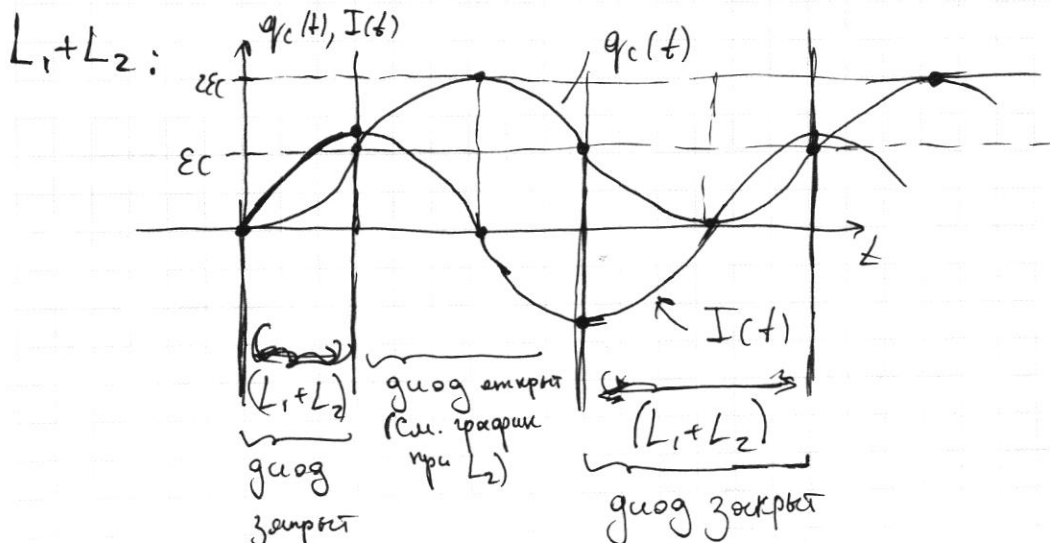 L₁+L₂:
q_c(t), I(t)
q_c(t)
2εC
εC
t
I(t)
(L₁+L₂)
диод
закрыт
диод открыт
(см. график
при L₂)
(L₁+L₂)
диод закрыт